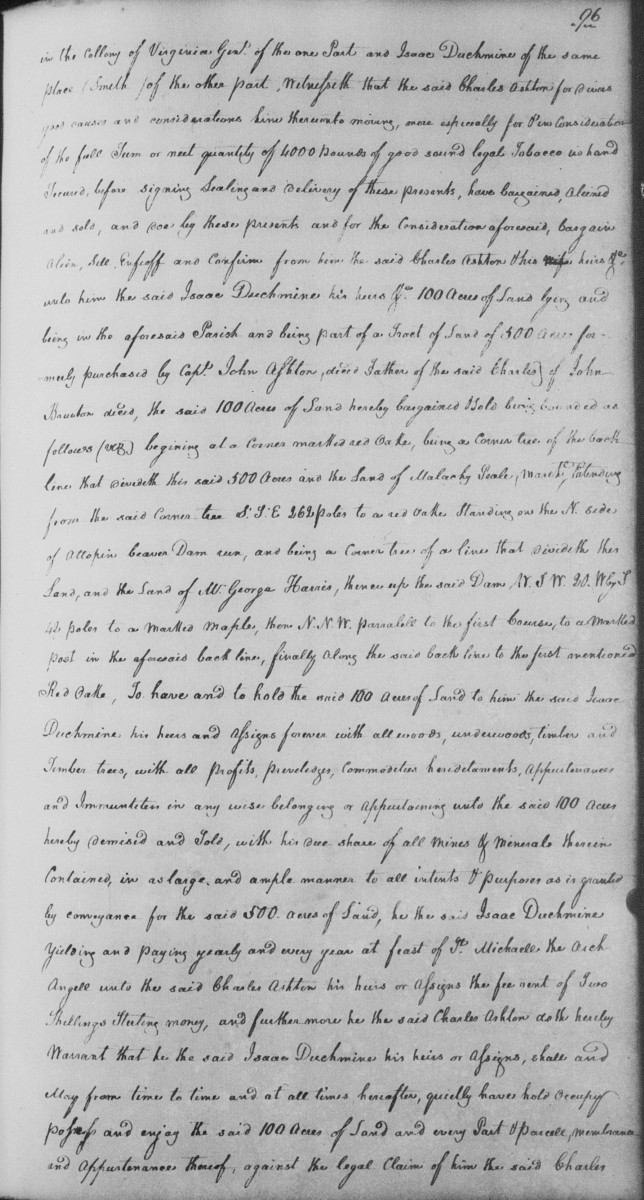 96
in the Collony of Virginia Gent. of the one Part and Isaac Duchmine of the same
place (Smith) of the other part, Witnesseth that the said Charles Ashton for divers
good causes and considerations him thereunto moving, more especially for &
of the full Sum or neet quantity of 4000 pounds of good sound legal Tobacco in hand
Secured, before signing Sealing and delivery of these presents, have bargained, Aliened
and sold, and doe by these presents and for the Consideration aforesaid, bargain
Alien, Sell, Enfeoff and Confirm from him the said Charles Ashton & his heirs &c.
unto him the said Isaac Duchmine his heirs &c. 100 Acres of Land lying and
being in the aforesaid Parish and being part of a Tract of Land of 500 Acres for-
merly purchased by Capt. John Ashton, (deced Father of the said Charles) of John
deced, the said 100 Acres of Land hereby bargained & Sold being bounded as
follows (vizt.) begining at a Corner marked red Oake, being a Corner tree of the back
line that divideth this said 500 Acres and the Land of Malachy Peale, Marcht., Extending
from the said Corner tree S. S. E 262 poles to a red Oake Standing on the N. side
of Allopin beaver Dam run, and being a Corner tree of a line that divideth this
Land, and the Land of Mr. George Harris, thence up the said Dam, W. S. W. 20. W by S
42 poles to a Marked Maple, then N. N. W. parralell to the first Course, to a Marked
post in the aforesaid back line, finally Along the said back line to the first mentioned
Red Oake, To have and to hold the said 100 Acres of Land to him the said Isaac
Duchmine his heirs and Assigns forever with all woods, underwoods, timber and
Timber trees, with all Profits, Preveledges, Commodities heriditaments, Appurtenances
and Immunities in any wise belonging or appertaining unto the said 100 Acres
hereby demised and Sold, with his due share of all Mines & Minerals therein
Contained, in as large, and ample manner to all intents & purposes as is granted
by conveyance for the said 500. acres of Land, he the said Isaac Duchmine
Yielding and paying yearly and every year at feast of St. Michaell the Arch
Angell unto the said Charles Ashton his heirs or Assigns the fee rent of Two
Shillings Sterling money, and further more he the said Charles Ashton doth hereby
Warrant that he the said Isaac Duchmine his heirs or Assigns, shall and
May from time to time and at all times hereafter, quietly have hold Occupy
possess and enjoy the said 100 Acres of Land and every Part & Parcell, membrance
and Appurtenance thereof, against the legal Claim of him the said Charles